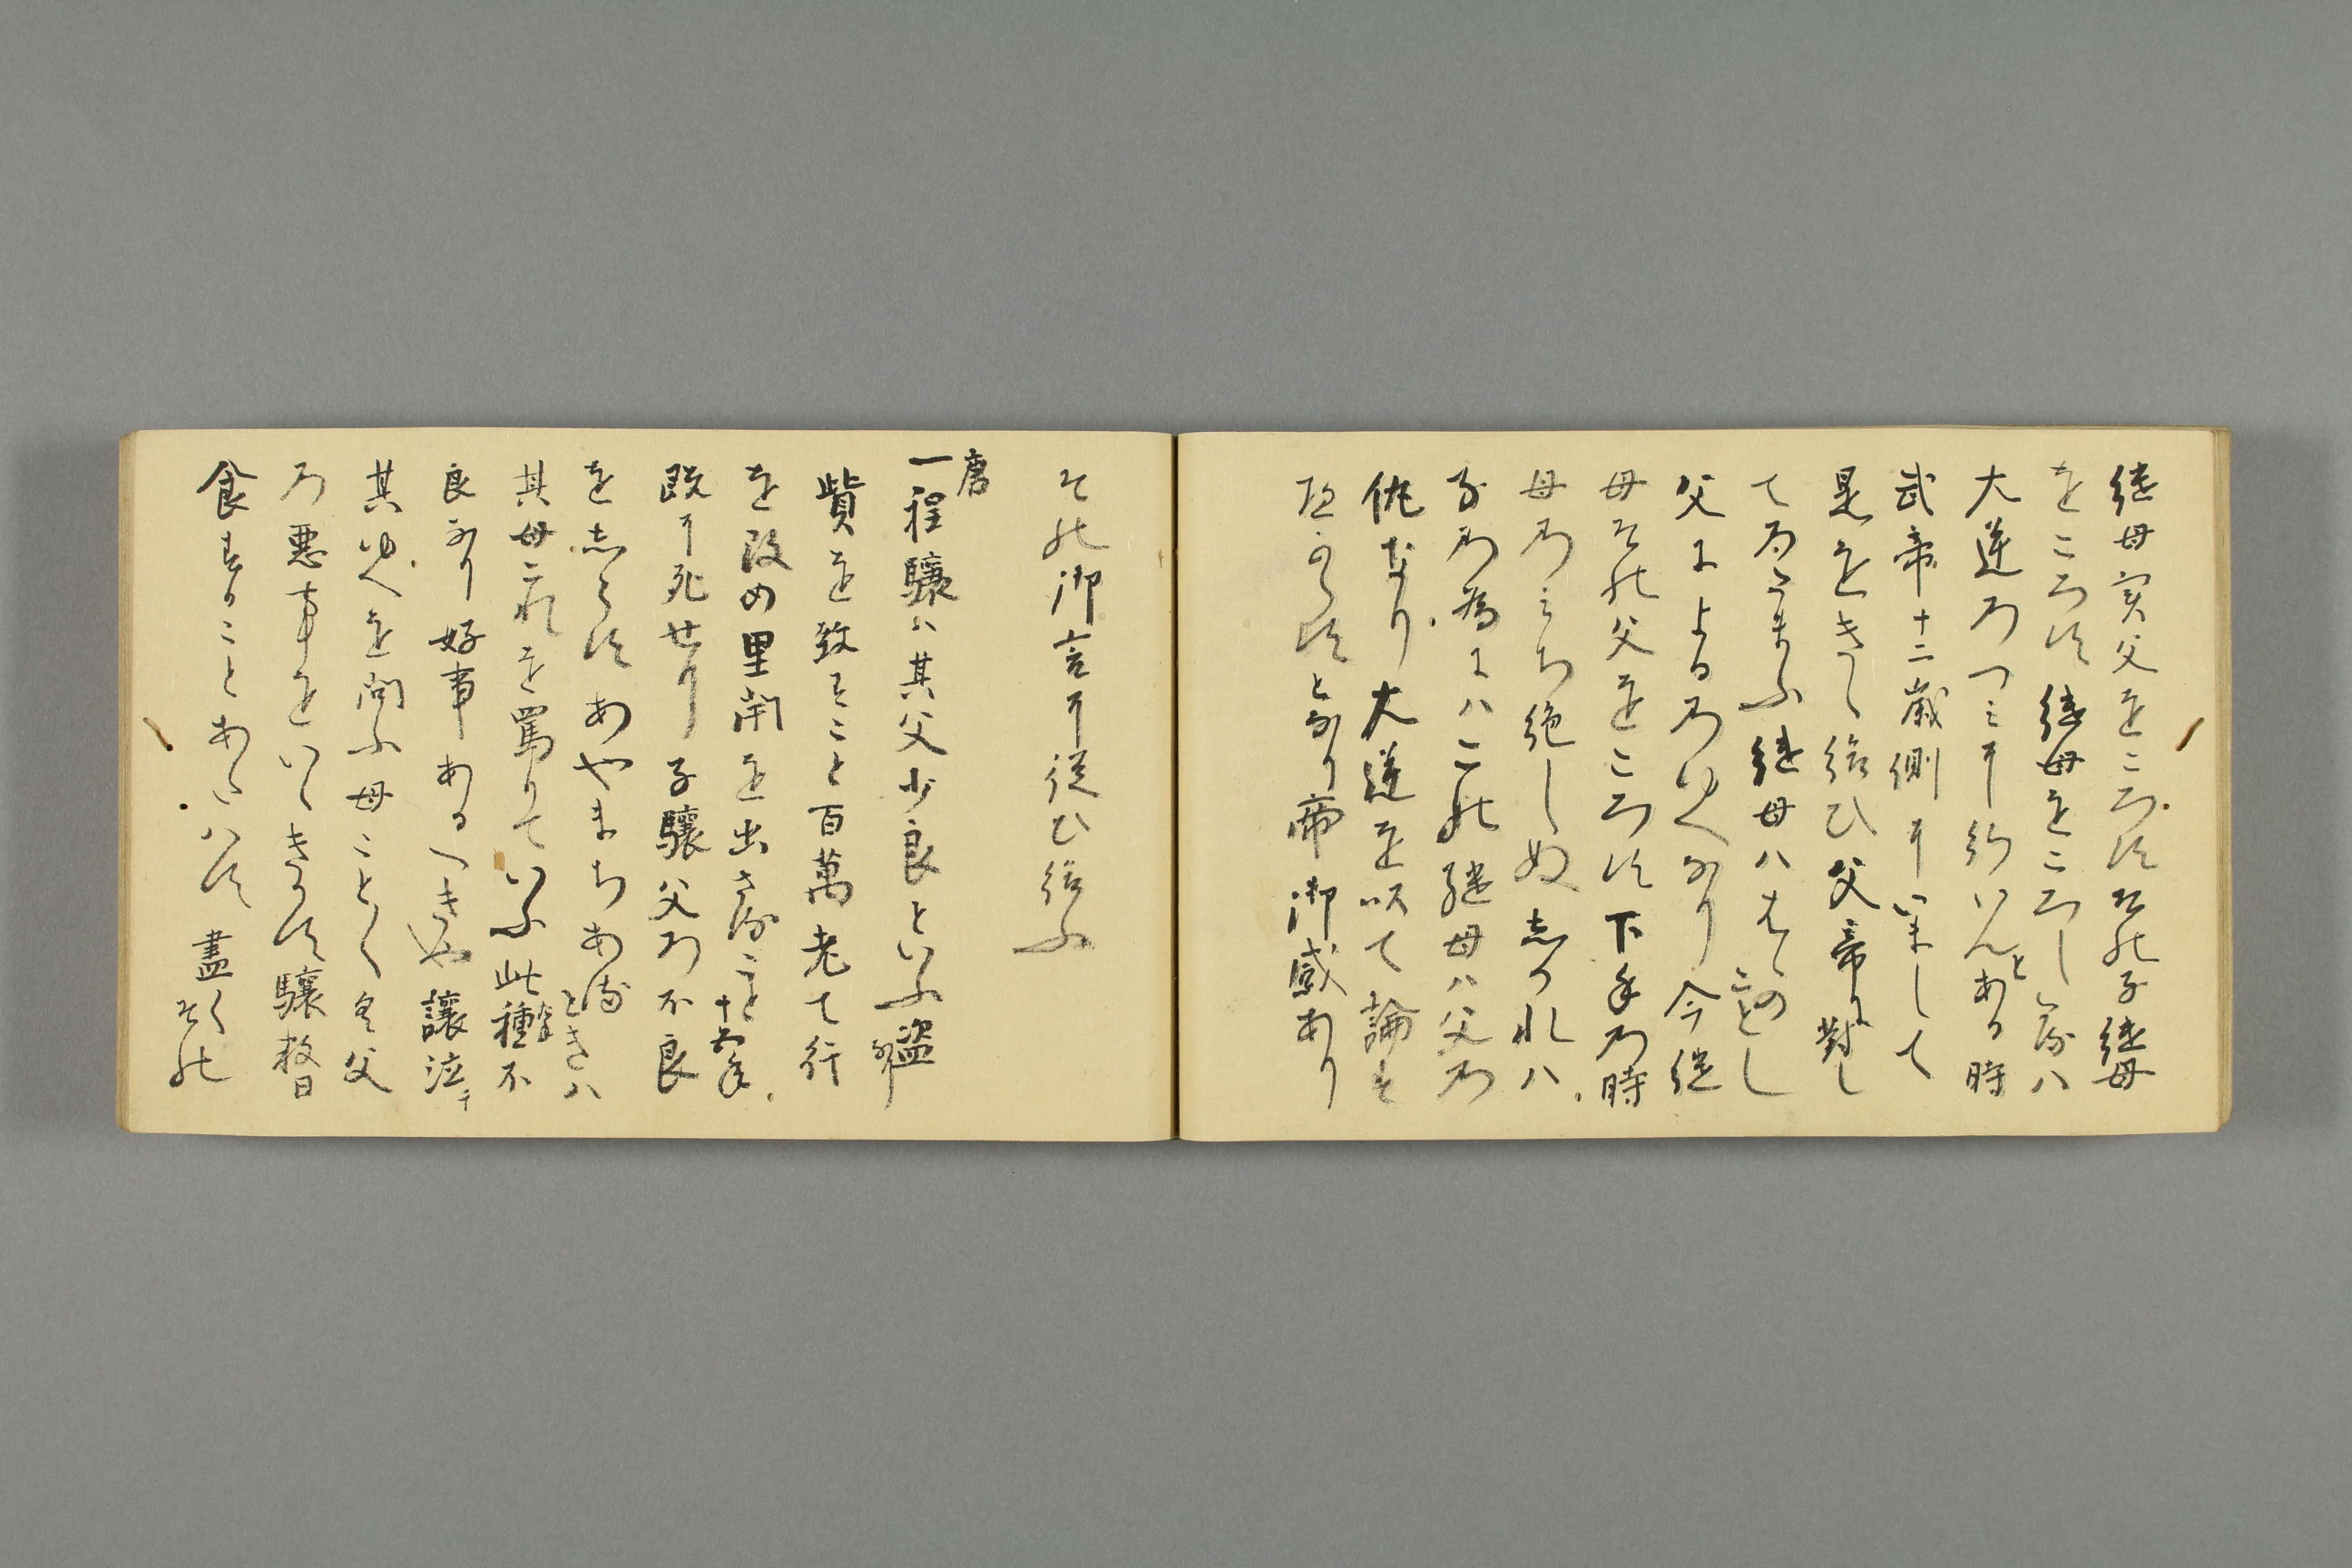 継母実父をころすその子継母
をころす継母をころしゝ承ハ
大逆のつミに行いんとある時
武帝十二歳側にいまして
是をきゝ給ひ父帝に對し
てのたまふ継母ハはゝのことし
父によるのゆへなり今継
母その父をころす下手の時
母のみち絶しぬしかれハ
子の為にハこの継母ハ父の
仇なり大逆を以て論す
へからすとなり帝御感あり
その御言に従ひ給ふ
唐
一程驤ハ其父少良といふ盗なり
貲を致すこと百萬老て行
を改め里閈を出さること十六年
既に死せり子驤父の不良
をしらすあやまちあるときハ
其母これを罵りていふ此種不
良なり好事あるへきや譲泣て
其ゆへを問ふ母ことく父
の悪事をいゝきかす驤数日
食することあたハす盡くその